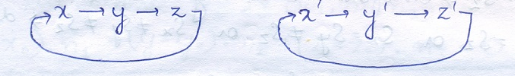 x → y → z x' → y' → z'